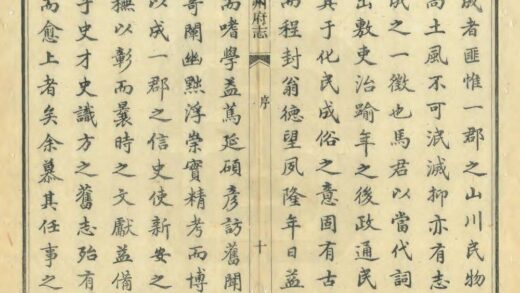 成者匪惟一郡之山川民物
高土風不可泯滅抑亦有志
成之一徵也馬君以當代詞
出敷吏治踰年之後政通民
其于化民成俗之意固有古
而程封翁德望夙隆年日益
州府志
序
十
而嗜學益篤延碩彥訪舊聞
奇闡幽黜浮崇實精考而博
以成一郡之信史使新安之
撫以彰而曩時之文獻益備
乎史才史識方之舊志殆有
而愈上者矣余慕其任事之